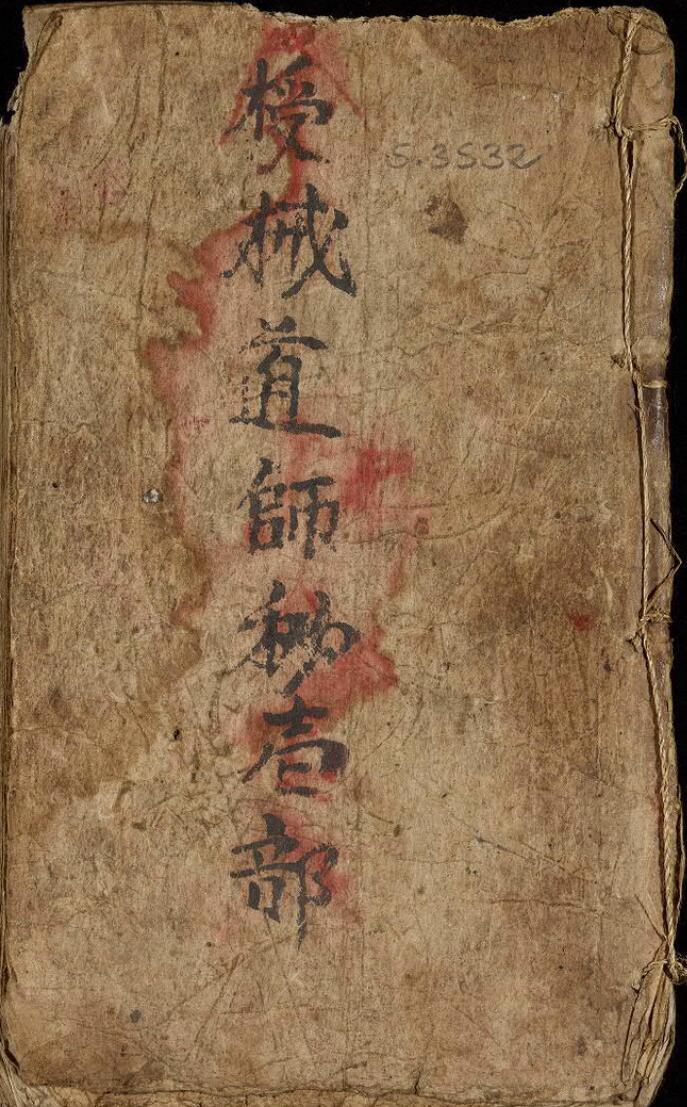 授械道師秘壱部
S.3532